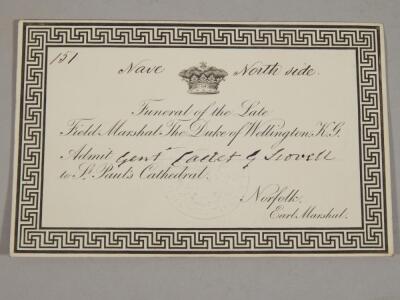 151
Nave North side.
Funeral of the Late
Field Marshal The Duke of Wellington, K.G.
Admit Gent Cadet G Scovell
to St. Paul's Cathedral.
Norfolk.
Earl Marshal.